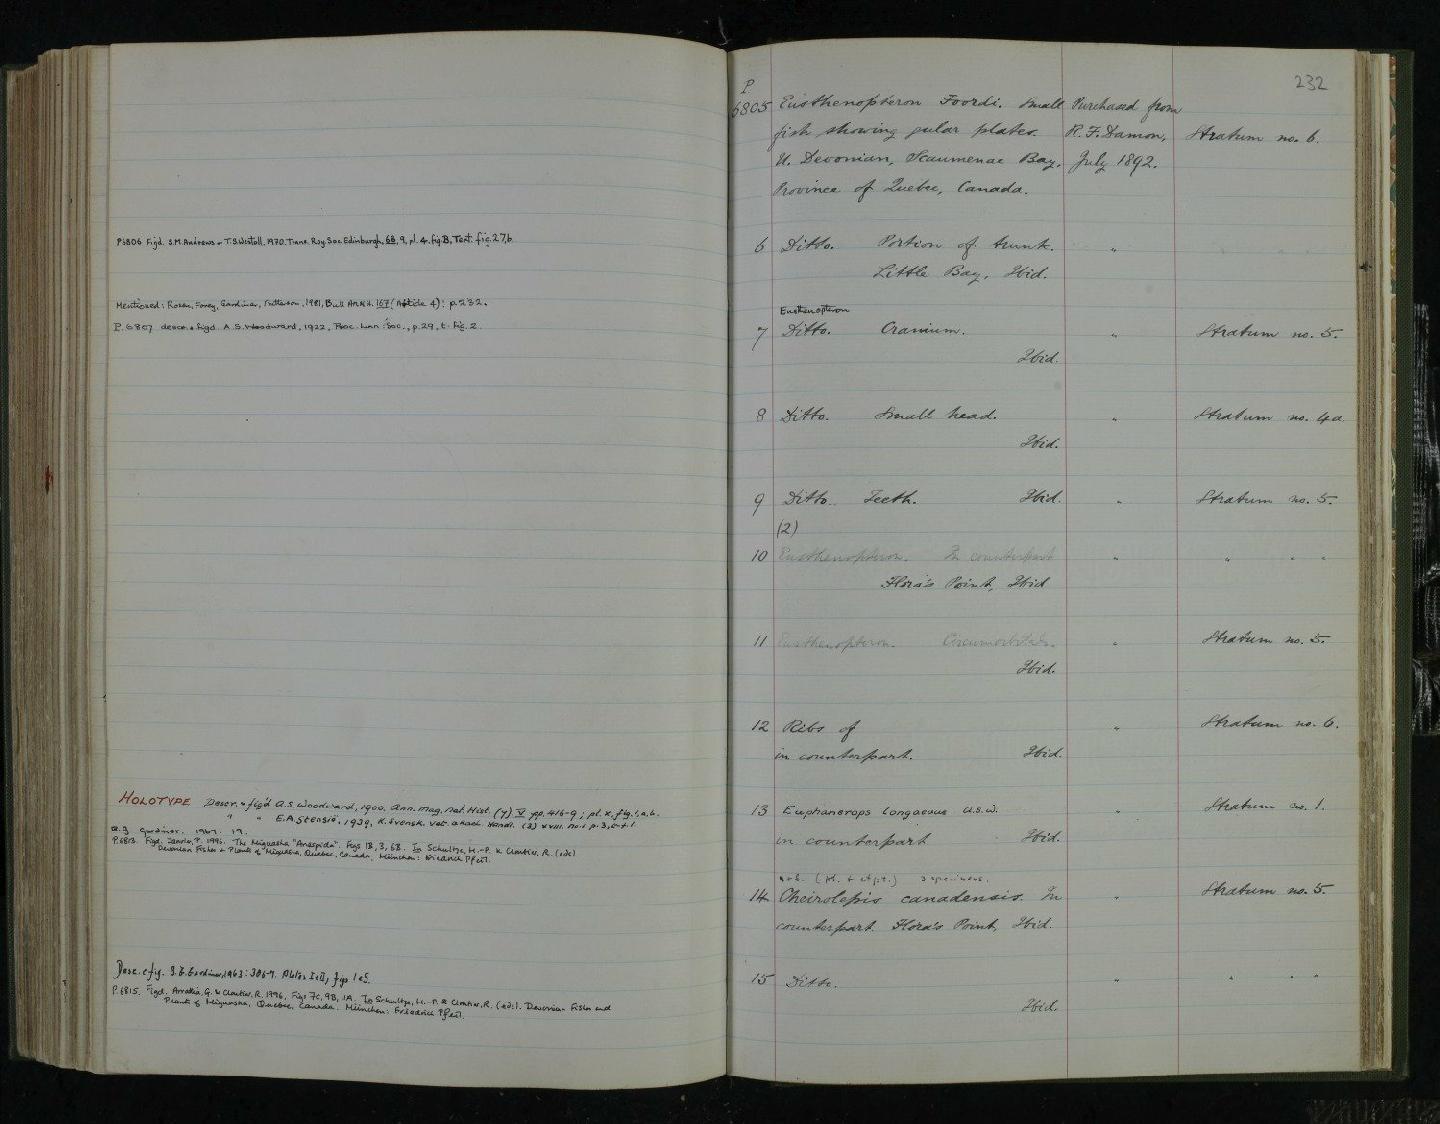 P6806 Figd. S.M. Andrews & T.S. Westoll, 1970. Trans. Roy. Soc. Edinburgh, 68, 9, pl. 4. fig B, Text. fig. 27,b
Mentioned: Rosen, Forey, Gardiner, Patterson, 1981, Bull AMNH. 167 (Article 4): p.232.
P.6807 descr. & figd. A.S. Woodward, 1922, Proc. Linn. Soc., p.29, t. fig. 2.
HOLOTYPE Descr. & fig'd A.S. Woodward, 1900. Ann. Mag. Nat. Hist. (7) V pp. 416-9; pl. x. fig. 1,a,b.
" " E.A. Stensiö, 1939, K. Svensk. Vet. akad. Handl. (3) xviii. no. 1 p. 3,
Gardiner. 1967. 19.
P.6813. Figd. Janvier, P. 1996. "The Miguasha "Anaspids". Figs 1B, 3, 6B. In Schultze, H.-P. & Cloutier, R. (eds)
Devonian Fishes & Plants of Miguasha, Quebec, Canada, München: Friedrich Pfeil.
Desc. & fig. B.G. Gardiner, 1963: 306-7. Plates I & II, figs 1 & 2.
P.6815. Figd. Arratia, G. & Cloutier, R. 1996, Figs 7C, 9B, 1A. In Schultze, H.-P. & Cloutier, R. (eds). Devonian Fishes and
Plants of Miguasha, Quebec, Canada. München: Friedrich Pfeil.
232
P
6805 Eusthenopteron Foordi. Small Purchased from
fish showing gular plates. R. F. Damon, Stratum no. 6.
U. Devonian, Scaumenac Bay, July 1892.
Province of Quebec, Canada.
6 Ditto. Portion of trunk. "
Little Bay, Ibid.
Eusthenopteron
7 Ditto. Cranium. " Stratum no. 5.
Ibid.
8 Ditto. Small head. " Stratum no. 4a
Ibid.
9 Ditto. Teeth. Ibid. " Stratum no. 5.
(2)
10 Eusthenopteron. In counterpart " " " "
Flora's Point, Ibid
11 Eusthenopteron. Circumorbitals. " Stratum no. 5.
Ibid.
12 Ribs of " Stratum no. 6.
in counterpart. Ibid.
13 Euphanerops longaevus A.S.W. " Stratum no. 1.
in counterpart Ibid.
a & b. (pt. & ctpt.) 2 specimens.
14 Cheirolepis canadensis. In " Stratum no. 5.
counterpart. Flora's Point, Ibid.
15 Ditto. " " " "
Ibid.